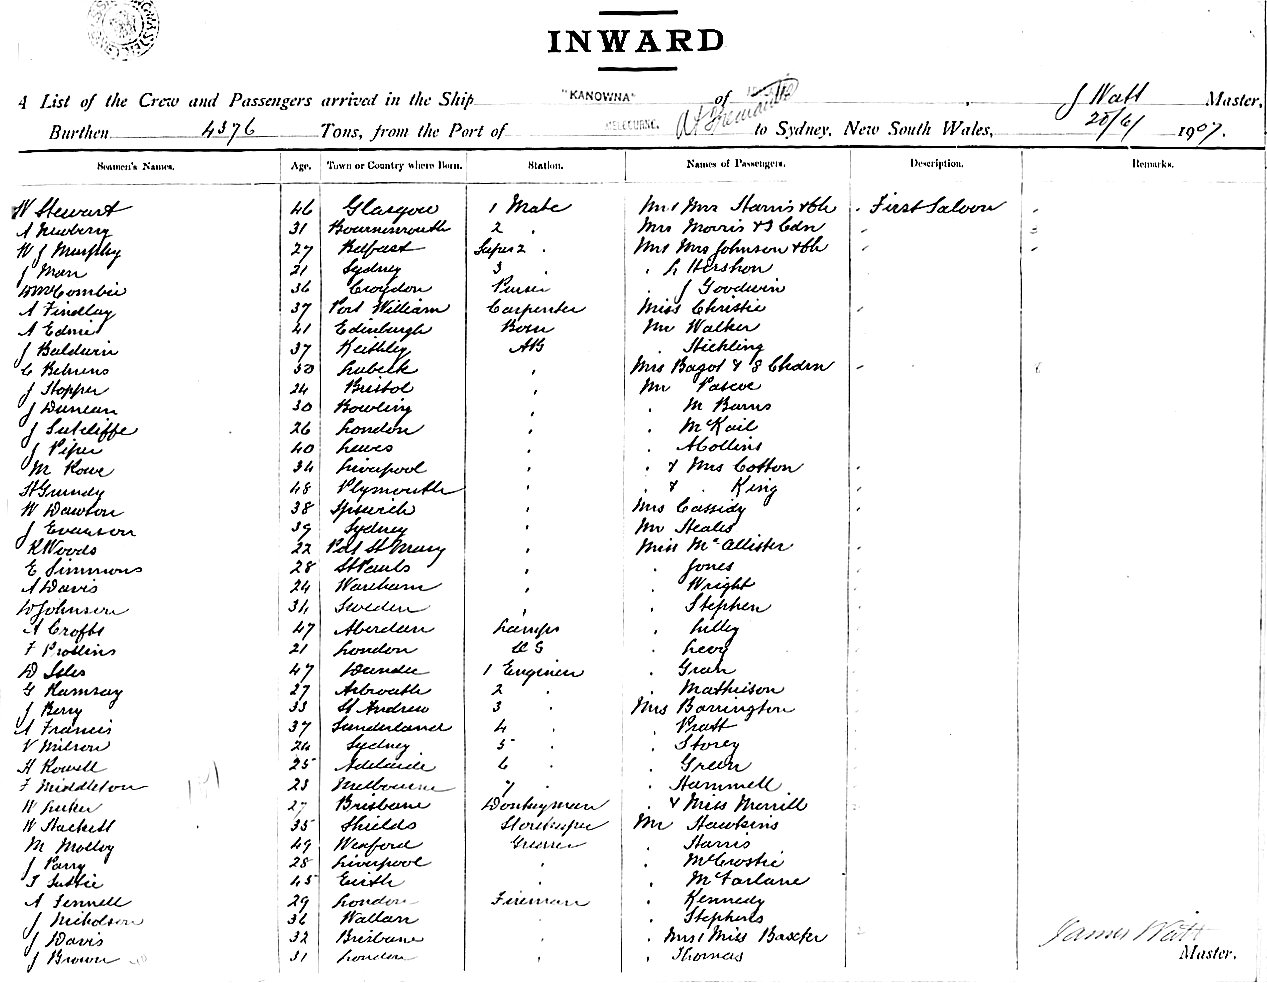 INWARD
A List of the Crew and Passengers arrived in the Ship "KANOWNA" of Fremantle, J Watt Master,
Burthen 4376 Tons, from the Port of MELBOURNE. to Sydney, New South Wales, 25/6/ 1907.
Seamen's Names. Age. Town or Country where Born. Station. Names of Passengers. Description. Remarks.
W Stewart 46 Glasgow 1 Mate Mr & Mrs Harris & Ch First Saloon
A Newberry 31 Bournemouth 2 Mrs Morris & 3 Cdn
W J Murphy 27 Belfast Super 2 Mr & Mrs Johnson & Ch
J Man 21 Sydney 3 " L Hershon
D McCombie 36 Croydon Purser " J Goodwin
A Findlay 37 Port William Carpenter Miss Christie
A Edmie 41 Edinburgh Bosn Mr Walker
J Baldwin 37 Keithley AB " Stichling
C Behrens 30 Lubeck " Mrs Bagot & 8 Chdrn
J Hopper 24 Bristol " Mr Pascoe
J Duncan 30 Bowling " " M Barns
J Sutcliffe 26 London " " McKail
J Piper 40 Lewes " " A Collins
M Rowe 34 Liverpool " " & Mrs Cotton
H Grundy 48 Plymouth " " & " King
W Dawson 38 Ipswich " Mrs Cassidy
J Evanson 39 Sydney " Mr Heales
R Woods 22 Port St Mary " Miss McAllister
E Simmons 28 St Pauls " " Jones
A Davis 24 Wareham " " Wright
W Johnson 34 Sweden " " Stephen
A Crofts 47 Aberdeen Lamps " Lilley
F Probins 21 London " Levy
D Isles 47 Dundee 1 Engineer " Gran
G Ramsay 27 Arbroath 2 " " Mathieson
J Berry 33 St Andrew 3 " Mrs Barrington
A Francis 37 Sunderland 4 " " Pratt
V Milson 24 Sydney 5 " " Storey
H Rowell 25 Adelaide 6 " " Green
F Middleton 23 Melbourne 7 " " Hammell
W Luker 27 Brisbane Donkeyman " & Miss Merrill
W Hackett 35 Shields Storekeeper Mr Hawkins
M Molloy 49 Wexford Greaser " Harris
J Parry 28 Liverpool " " McCrostie
T Suttie 45 Erith " " McFarlane
A Fennell 29 London Fireman " Kennedy
J Nicholson 36 Wallan " " Stephens
J Davis 32 Brisbane " Mrs & Miss Baxter
J Brown 31 London " " Thomas
James Watt
Master.